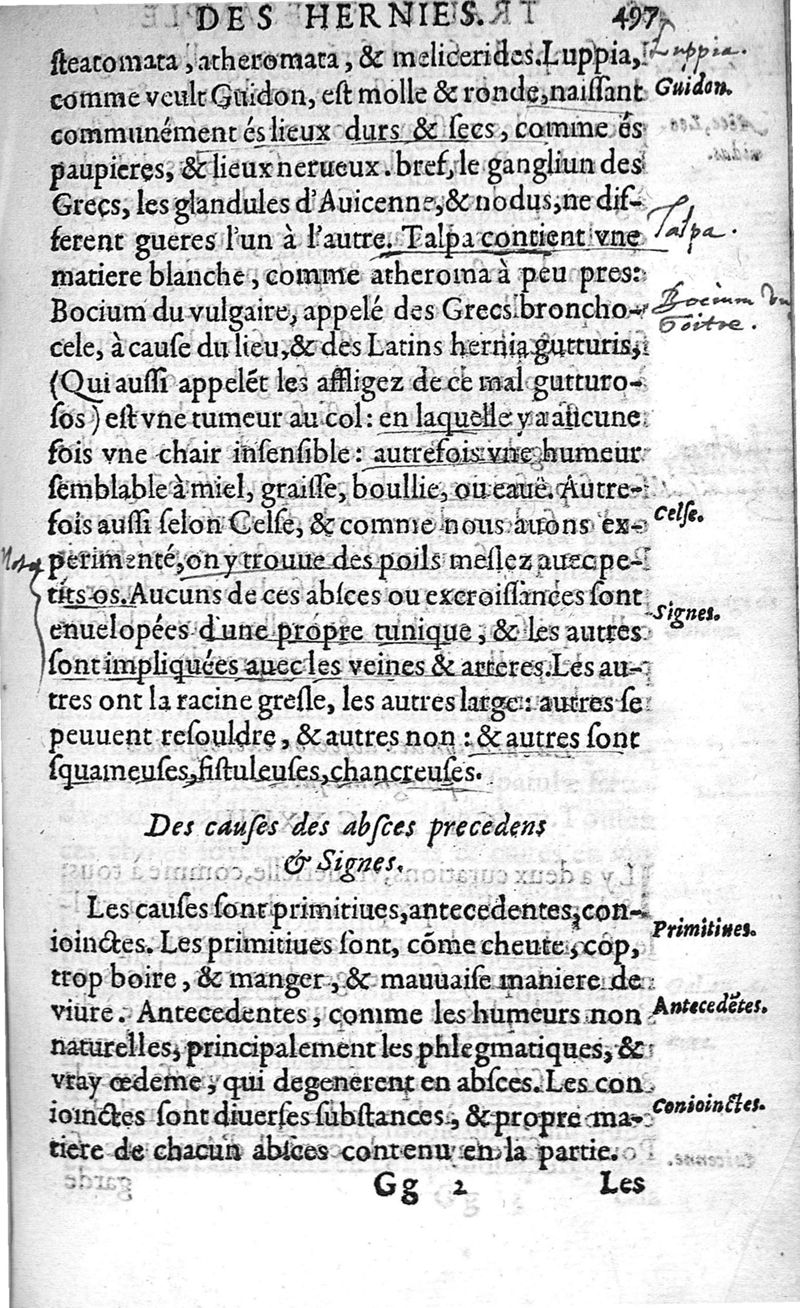 DES HERNIES. 497
steatomata, atheromata, & melicerides. Luppia,
Luppia.
comme veult Guidon, est molle & ronde, naissant
Guidon.
communément és lieux durs & secs, comme és
paupieres, & lieux nerueux. bref, le gangliun des
Grecs, les glandules d'Auicenne, & nodus, ne dif-
ferent gueres l'un à l'autre. Talpa contient vne
Talpa.
matiere blanche, comme atheroma à peu pres:
Bocium du vulgaire, appelé des Grecs broncho-
Bocium du
Goitre.
cele, à cause du lieu, & des Latins hernia gutturis,
(Qui aussi appelẽt les affligez de ce mal gutturo-
sos) est vne tumeur au col: en laquelle y a aucune
fois vne chair insensible: autrefois vne humeur
semblable à miel, graisse, boullie, ou eauë. Autre-
fois aussi selon Celse, & comme nous auons ex-
Celse.
perimenté, on y trouue des poils meslez auec pe-
Nota
tits os. Aucuns de ces absces ou excroissances sont
Signes.
enuelopées d'une propre tunique, & les autres
sont impliquées auec les veines & arteres. Les au-
tres ont la racine gresle, les autres large: autres se
peuuent resouldre, & autres non: & autres sont
squameuses, fistuleuses, chancreuses.
Des causes des absces precedens
& Signes.
Les causes sont primitiues, antecedentes, con-
ioinctes. Les primitiues sont, cõme cheute, cop,
Primitiues.
trop boire, & manger, & mauuaise maniere de
viure. Antecedentes, comme les humeurs non
Antecedẽtes.
naturelles, principalement les phlegmatiques, &
vray œdeme, qui degenerent en absces. Les con
ioinctes sont diuerses substances, & propre ma-
Conioinctes.
tiere de chacun absces contenu en la partie.
Gg 2 Les